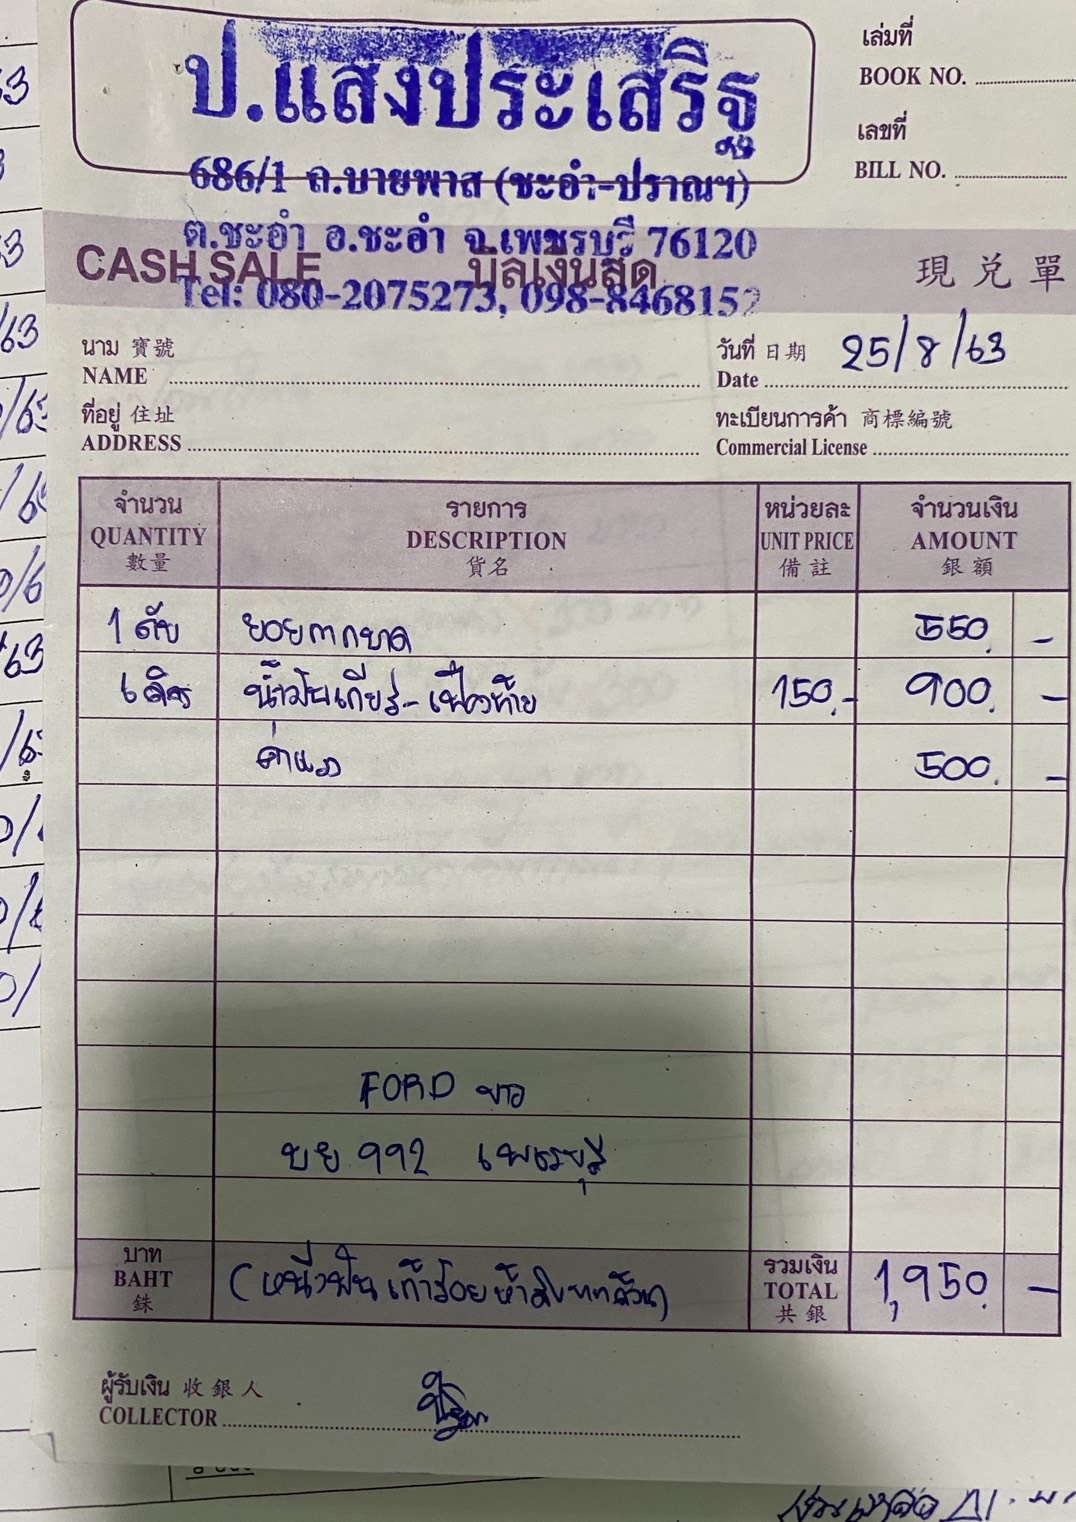 ป.แสงประเสริฐ
686/1 ถ.บายพาส (ชะอำ-ปราณฯ)
ต.ชะอำ อ.ชะอำ จ.เพชรบุรี 76120
Tel: 080-2075273, 098-8468152
เล่มที่
BOOK NO.
เลขที่
BILL NO.
CASH SALE บิลเงินสด 現兑單
นาม 寶號
NAME
วันที่ 日期 25/8/63
Date
ที่อยู่ 住址
ADDRESS
ทะเบียนการค้า 商標編號
Commercial License
จำนวน รายการ หน่วยละ จำนวนเงิน
QUANTITY DESCRIPTION UNIT PRICE AMOUNT
數量 貨名 備註 銀額
1 ยอยกากบาด 550.-
6 ลิตร น้ำมันเกียร์-เฟืองท้าย 150.- 900.-
ค่าแรง 500.-
FORD ขาว
บย 992 เพชรบุรี
บาท
BAHT
銖
(หนึ่งพันเก้าร้อยห้าสิบบาทถ้วน)
รวมเงิน
TOTAL
共銀
1,950.-
ผู้รับเงิน 收銀人
COLLECTOR